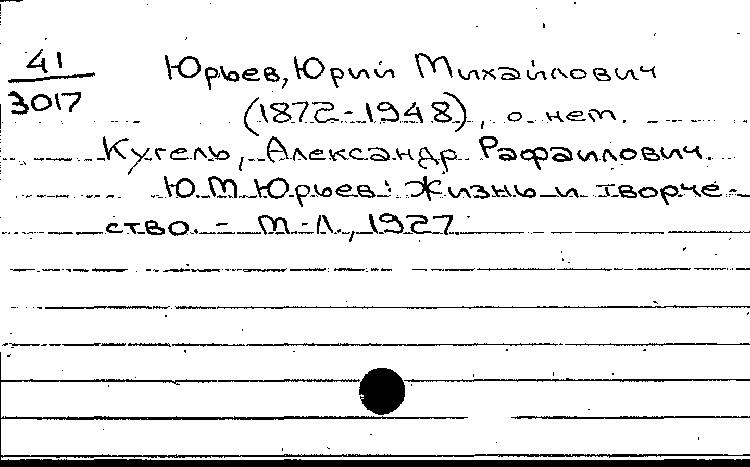 41
3017
Юрьев, Юрий Михайлович
(1872-1948), о нем.
Кугель, Александр Рафаилович.
Ю.М Юрьев: Жизнь и творче-
ство. - М.-Л., 1927